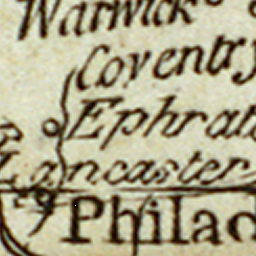 Warwick
Coventry
Ephrat
Lancaster
Philad